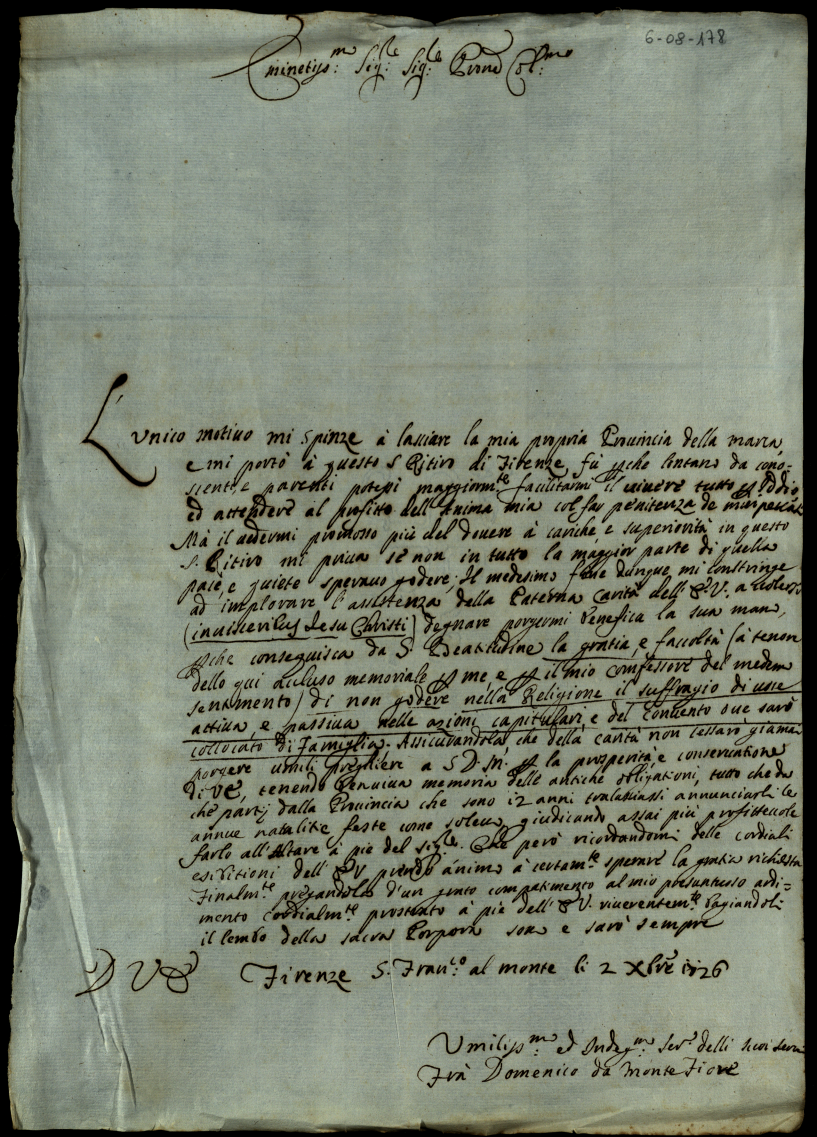 6-08-178
Eminetiss:mo Sig:le Sig:le Prone Col:mo
L'unico motiuo mi spinze à lasciare la mia propria Prouincia della marca
e mi portò à questo S Ritiro di Firenze, fù pche lontano da cono-
scienti, e parenti potessi maggiormte facilitarmi il uiuere tutto p Iddio
ed attendere al profitto dell'anima mia col far penitenza de miei peccati
Mà il uedermi promosso più del douere à cariche, e superiorità in questo
S. Ritiro mi priua se non in tutto la maggior parte di quella
pace, e quiete sperauo godere; Il medesimo fine dunque mi constringe
ad implorare l'assistenza della Paterna carità dell'E V. a uolersi
(in uisceribus Jesu Christi) degnare porgermi benefica la sua mano,
pche conseguisca da S. Beatitudine la gratia, e faccoltà (à tenore
dello qui accluso memoriale p me, e p il mio confessore del medemo
sentimento) di non godere nella Religione il suffragio di uoce
attiua, e passiua nelle azioni capitulari, e del Conuento oue sarò
collocato di Famiglia. Assicurandola, che della carità non cessarò giamai
porgere umili preghiere a S D. M. p la prosperità, e conseruatione
di VE, tenendo ben uiua memoria delle antiche obligationi, tutto che da
che partij dalla Prouincia che sono 12 anni tralasciassi annunciarli le
annue natalitie feste come soleuo, giudicando assai più profitteuole
farlo all'Altare à piè del sigle. Che però ricordandomi delle cordiali
esibitioni dell'E V prendo ánimo à certamte sperare la gratia richiesta
Finalmte pregandola d'un grato compatimento al mio presuntuoso ardi=
mento cordialmte prostrato à piè dell'E V. riuerentemte bagiandoli
il lembo della sacra Porpora sono e sarò sempre
D V E Firenze S. Franco al monte li 2 Xbre 1726
Umiliss:mo ed Indeg:mo Ser:e delli suoi serui
Frà Domenico da Monte Fiore